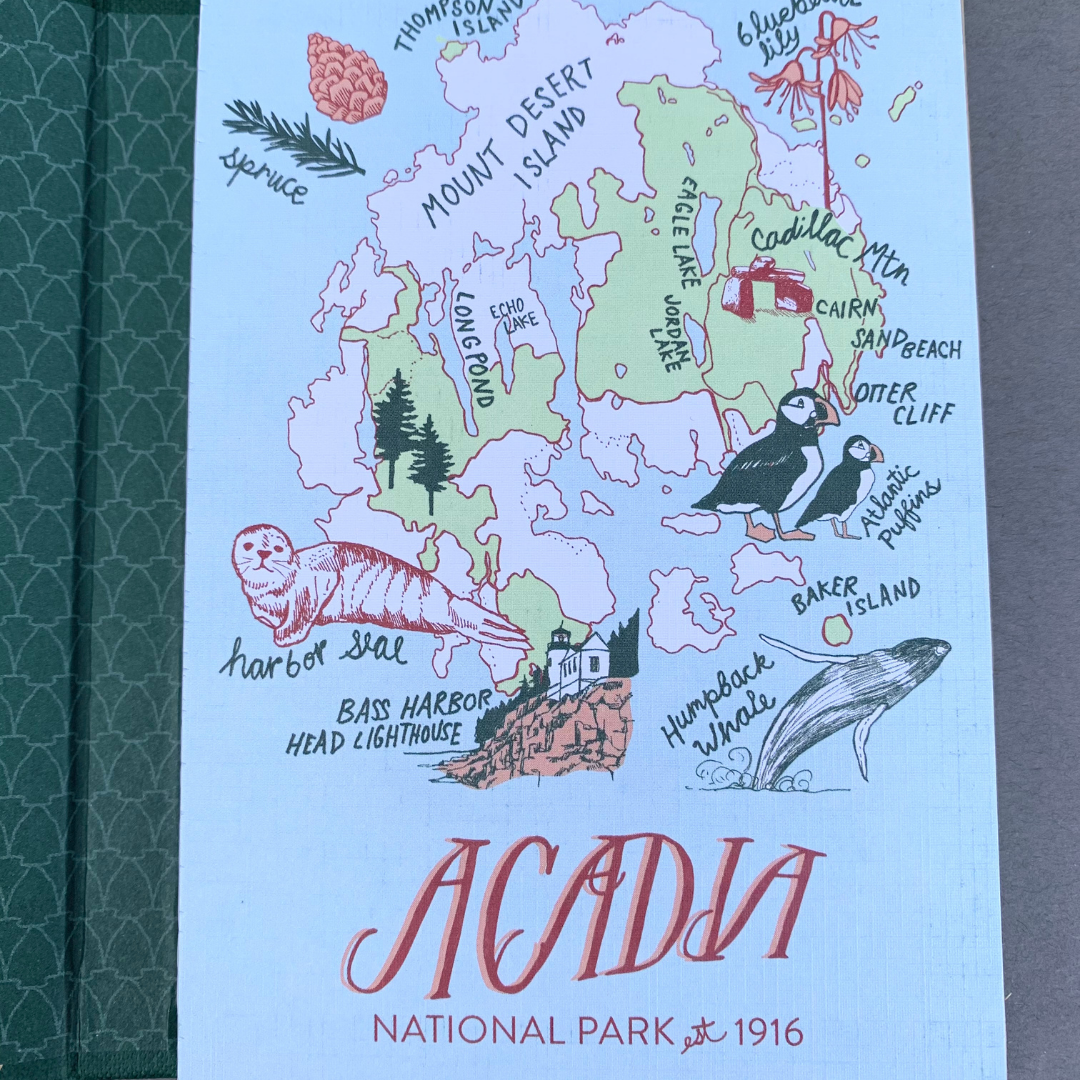 THOMPSON
ISLAND
lily
MOUNT DESERT
ISLAND
spruce
EAGLE LAKE
Cadillac Mtn
LONG POND
ECHO
LAKE
JORDAN
LAKE
CAIRN
SAND BEACH
OTTER
CLIFF
Atlantic
Puffins
BAKER
ISLAND
harbor seal
Humpback
Whale
BASS HARBOR
HEAD LIGHTHOUSE
ACADIA
NATIONAL PARK est 1916